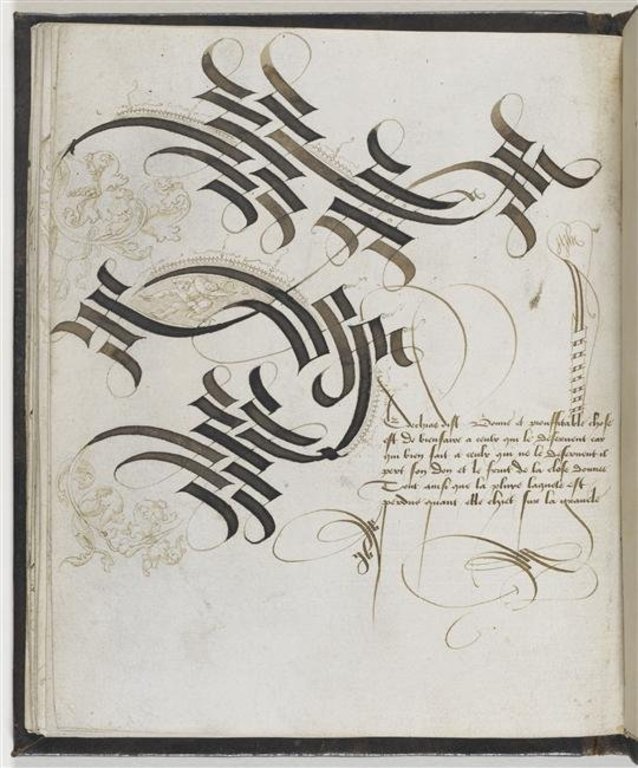 Le decliac dist Bonne et prouffitable chose
est de bienfaire a ceulx qui le deseruent car
qui bien fait a ceulx qui ne le deseruent il
pert son don et le fruit de la chose donnee
Tout ainsi que la pluye laquele est
perdue quant elle chiet sur la grauele